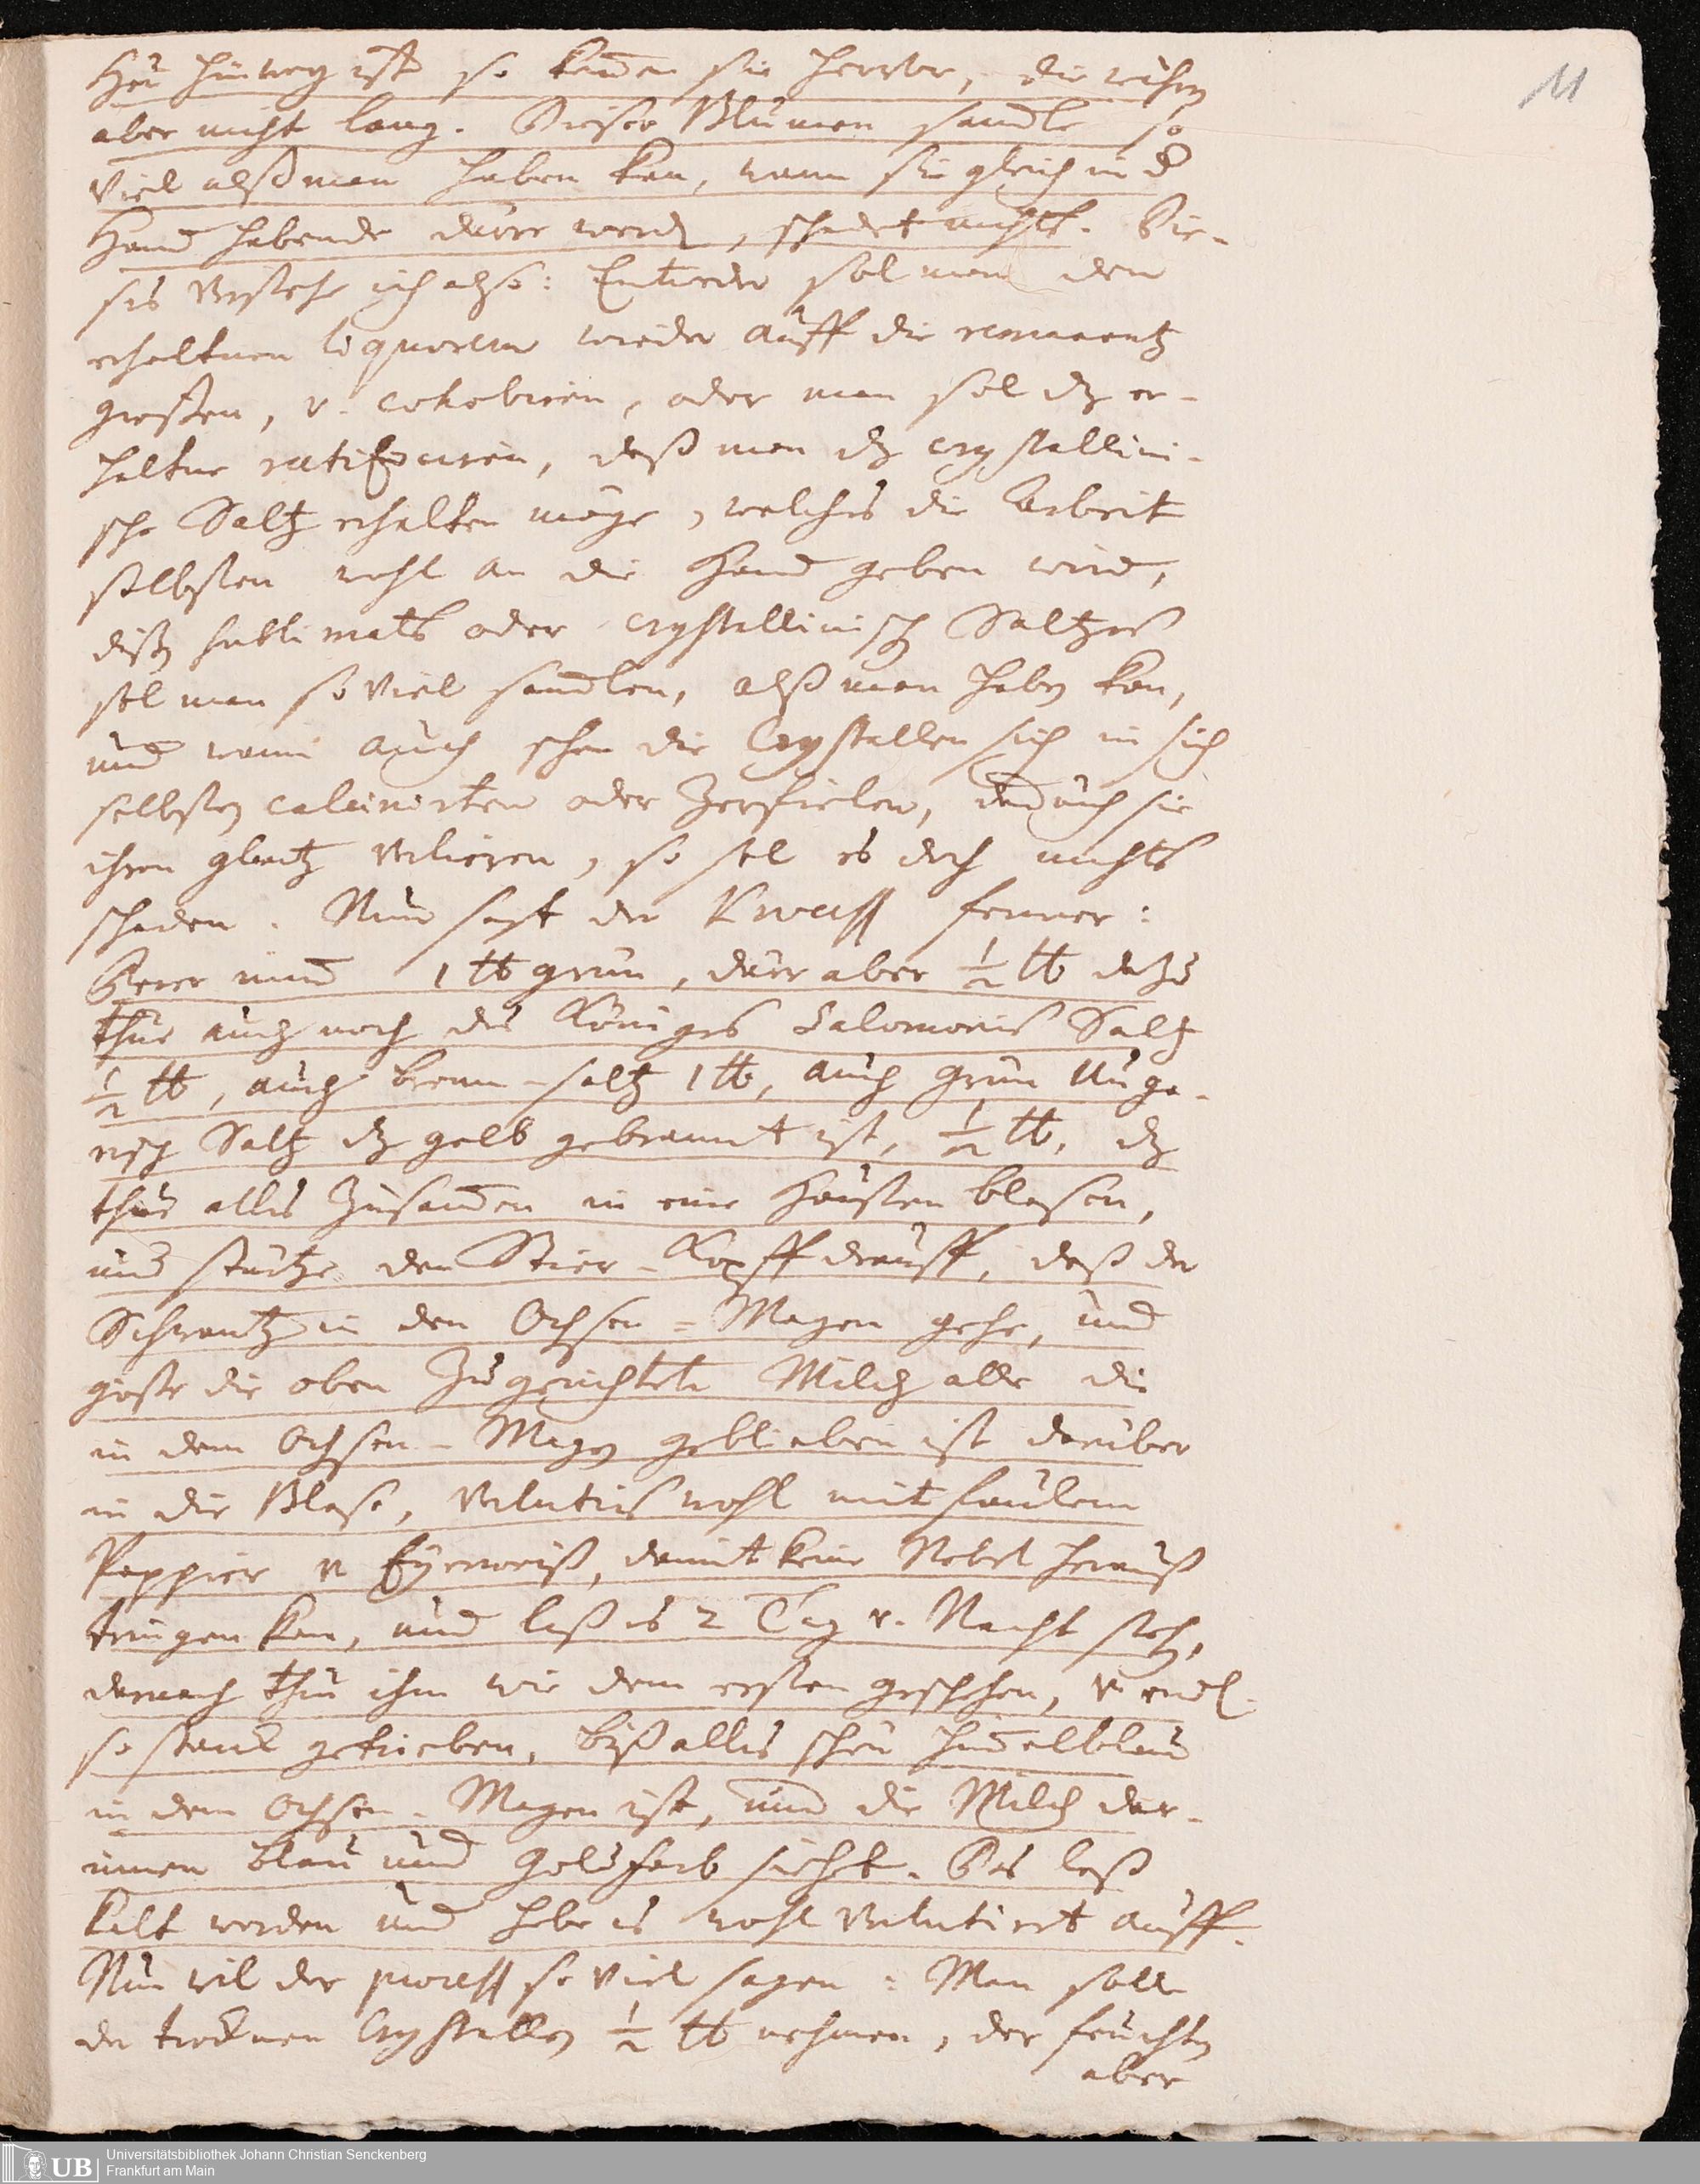 Heu hinweg ist so kom̄en sie herver, die wehrn
aber nicht lang. Dieser Blumen samble so
Viel alß man haben kan, wann sie gleich in d
Hand habende dürr werdn, schadet nichts. Die-
ses verstehe ich also: Entweder sol man den
erhaltnen liquorem wieder auff die remanentz
gießen, v. cohobiren, oder man sol dz er-
haltne rectificiren, daß man dz crystallini-
sche Saltz erhalten möge, welches die Arbeit
selbsten wohl an die Hand geben wird,
dißs sublimats oder crystallinisch Saltzes
sol man so viel samblen, alß man habn kan,
und wann auch schon die Crystallen sich in sich
selbstn calcinirten oder zerfielen, dadurch sie
ihren glantz verliehren, so sol es doch nichts
schaden. Nun sagt der Process ferner:
Derer nim̄ 1 ℔ grün, dürr aber ½ ℔ dazu
thue auch noch des Königes Salomonis Saltz
½ ℔, auch brenn-saltz 1 ℔, auch grün Unga-
risch Saltz dz gelb gebrannt ist, ½ ℔, dz
thue alles zusam̄en in eine Blasen,
und stürtze den Stier-Kopff drauff, daß der
Schwantz in den Ochsen-Magen gehe, und
gieße die oben zugerichtete Milch alle die
in dem Ochsen-Magn geblieben ist darüber
in die Blase, verlutirs wohl mit faulem
Pappier v Eyerweiß, damit keine Nebel herauß
tringen kan, und laß es 2 Tag v. Nacht stehn,
darnach thu ihm wie dem ersten geschehen, v endl.
so starck getrieben, biß alles schön him̄elblau
in dem Ochsen-Magen ist, und die Milch dar-
innen blau und Goldfarb siehet. Das laß
kalt werden und hebe es wohl verlutiret auff.
Nun wil der process so viel sagen: Man solle
der trocknen Crystalln ½ ℔ nehmen, der feuchtn
aber
11
UB
Universitätsbibliothek Johann Christian Senckenberg
Frankfurt am Main